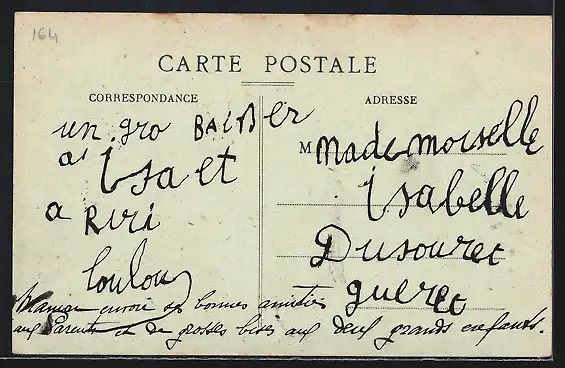 164
CARTE POSTALE
CORRESPONDANCE
un gro BAISER
a Isa et
a RiRi
loulou
Maman envoie ses bonnes amitiés
aux Parents et de grosses bises aux deux grands enfants.
ADRESSE
Mademoiselle
isabelle
Dusouret
gueret